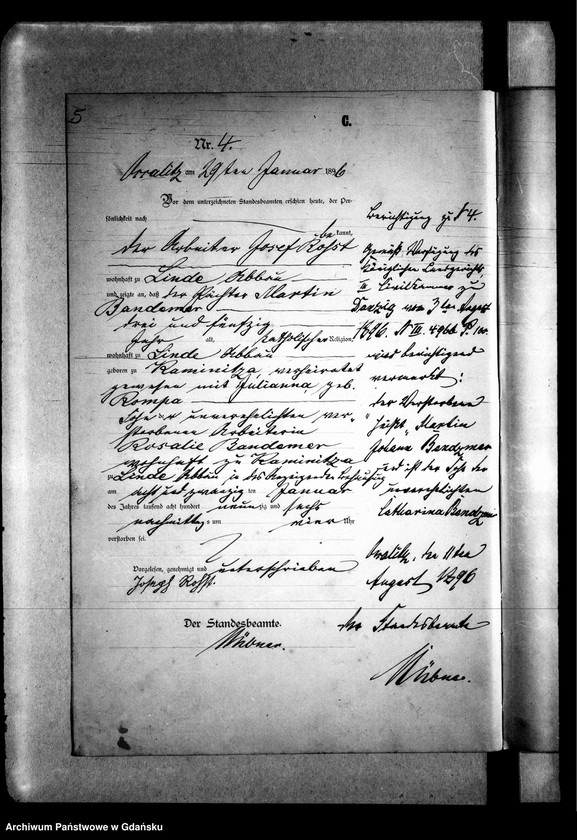 5
C.
Nr. 4.
am 29ten Januar 1896
Vor dem unterzeichneten Standesbeamten erschien heute, der Per-
sönlichkeit nach
be kannt,
der Arbeiter Josef Rohst
wohnhaft zu Linde Abbau
und zeigte an, daß der Pächter Martin
Bandemer
drei und fünfzig
Jahr alt, katholischer Religion,
wohnhaft zu Linde Abbau
geboren zu Kaminitza, verheiratet
gewesen mit Julianna, geb.
Rompa
Sohn der unverehelichten ver-
storbenen Arbeiterin
Rosalie Bandemer
wohnhaft zu Kaminitza
zu Linde Abbau in des Anzeigenden Behausung
am acht und zwanzig ten Januar
des Jahres tausend acht hundert neunzig und sechs
nachmittags um vier Uhr
verstorben sei.
Vorgelesen, genehmigt und unterschrieben
Joseph Rohst.
Der Standesbeamte.
Hübner.
Berichtigung zu № 4.
Gemäß Verfügung des
Königlichen Landgerichts,
Civilkammer zu
Danzig vom August
1896. № III.
wird berichtigend
vermerkt:
der Verstorbene
heißt "Martin
Johann Bandzmer
und ist der Sohn der
unverehelichten
Catharina
den 11ten
August 1896
Der Standesbeamte
Hübner.
Archiwum Państwowe w Gdańsku